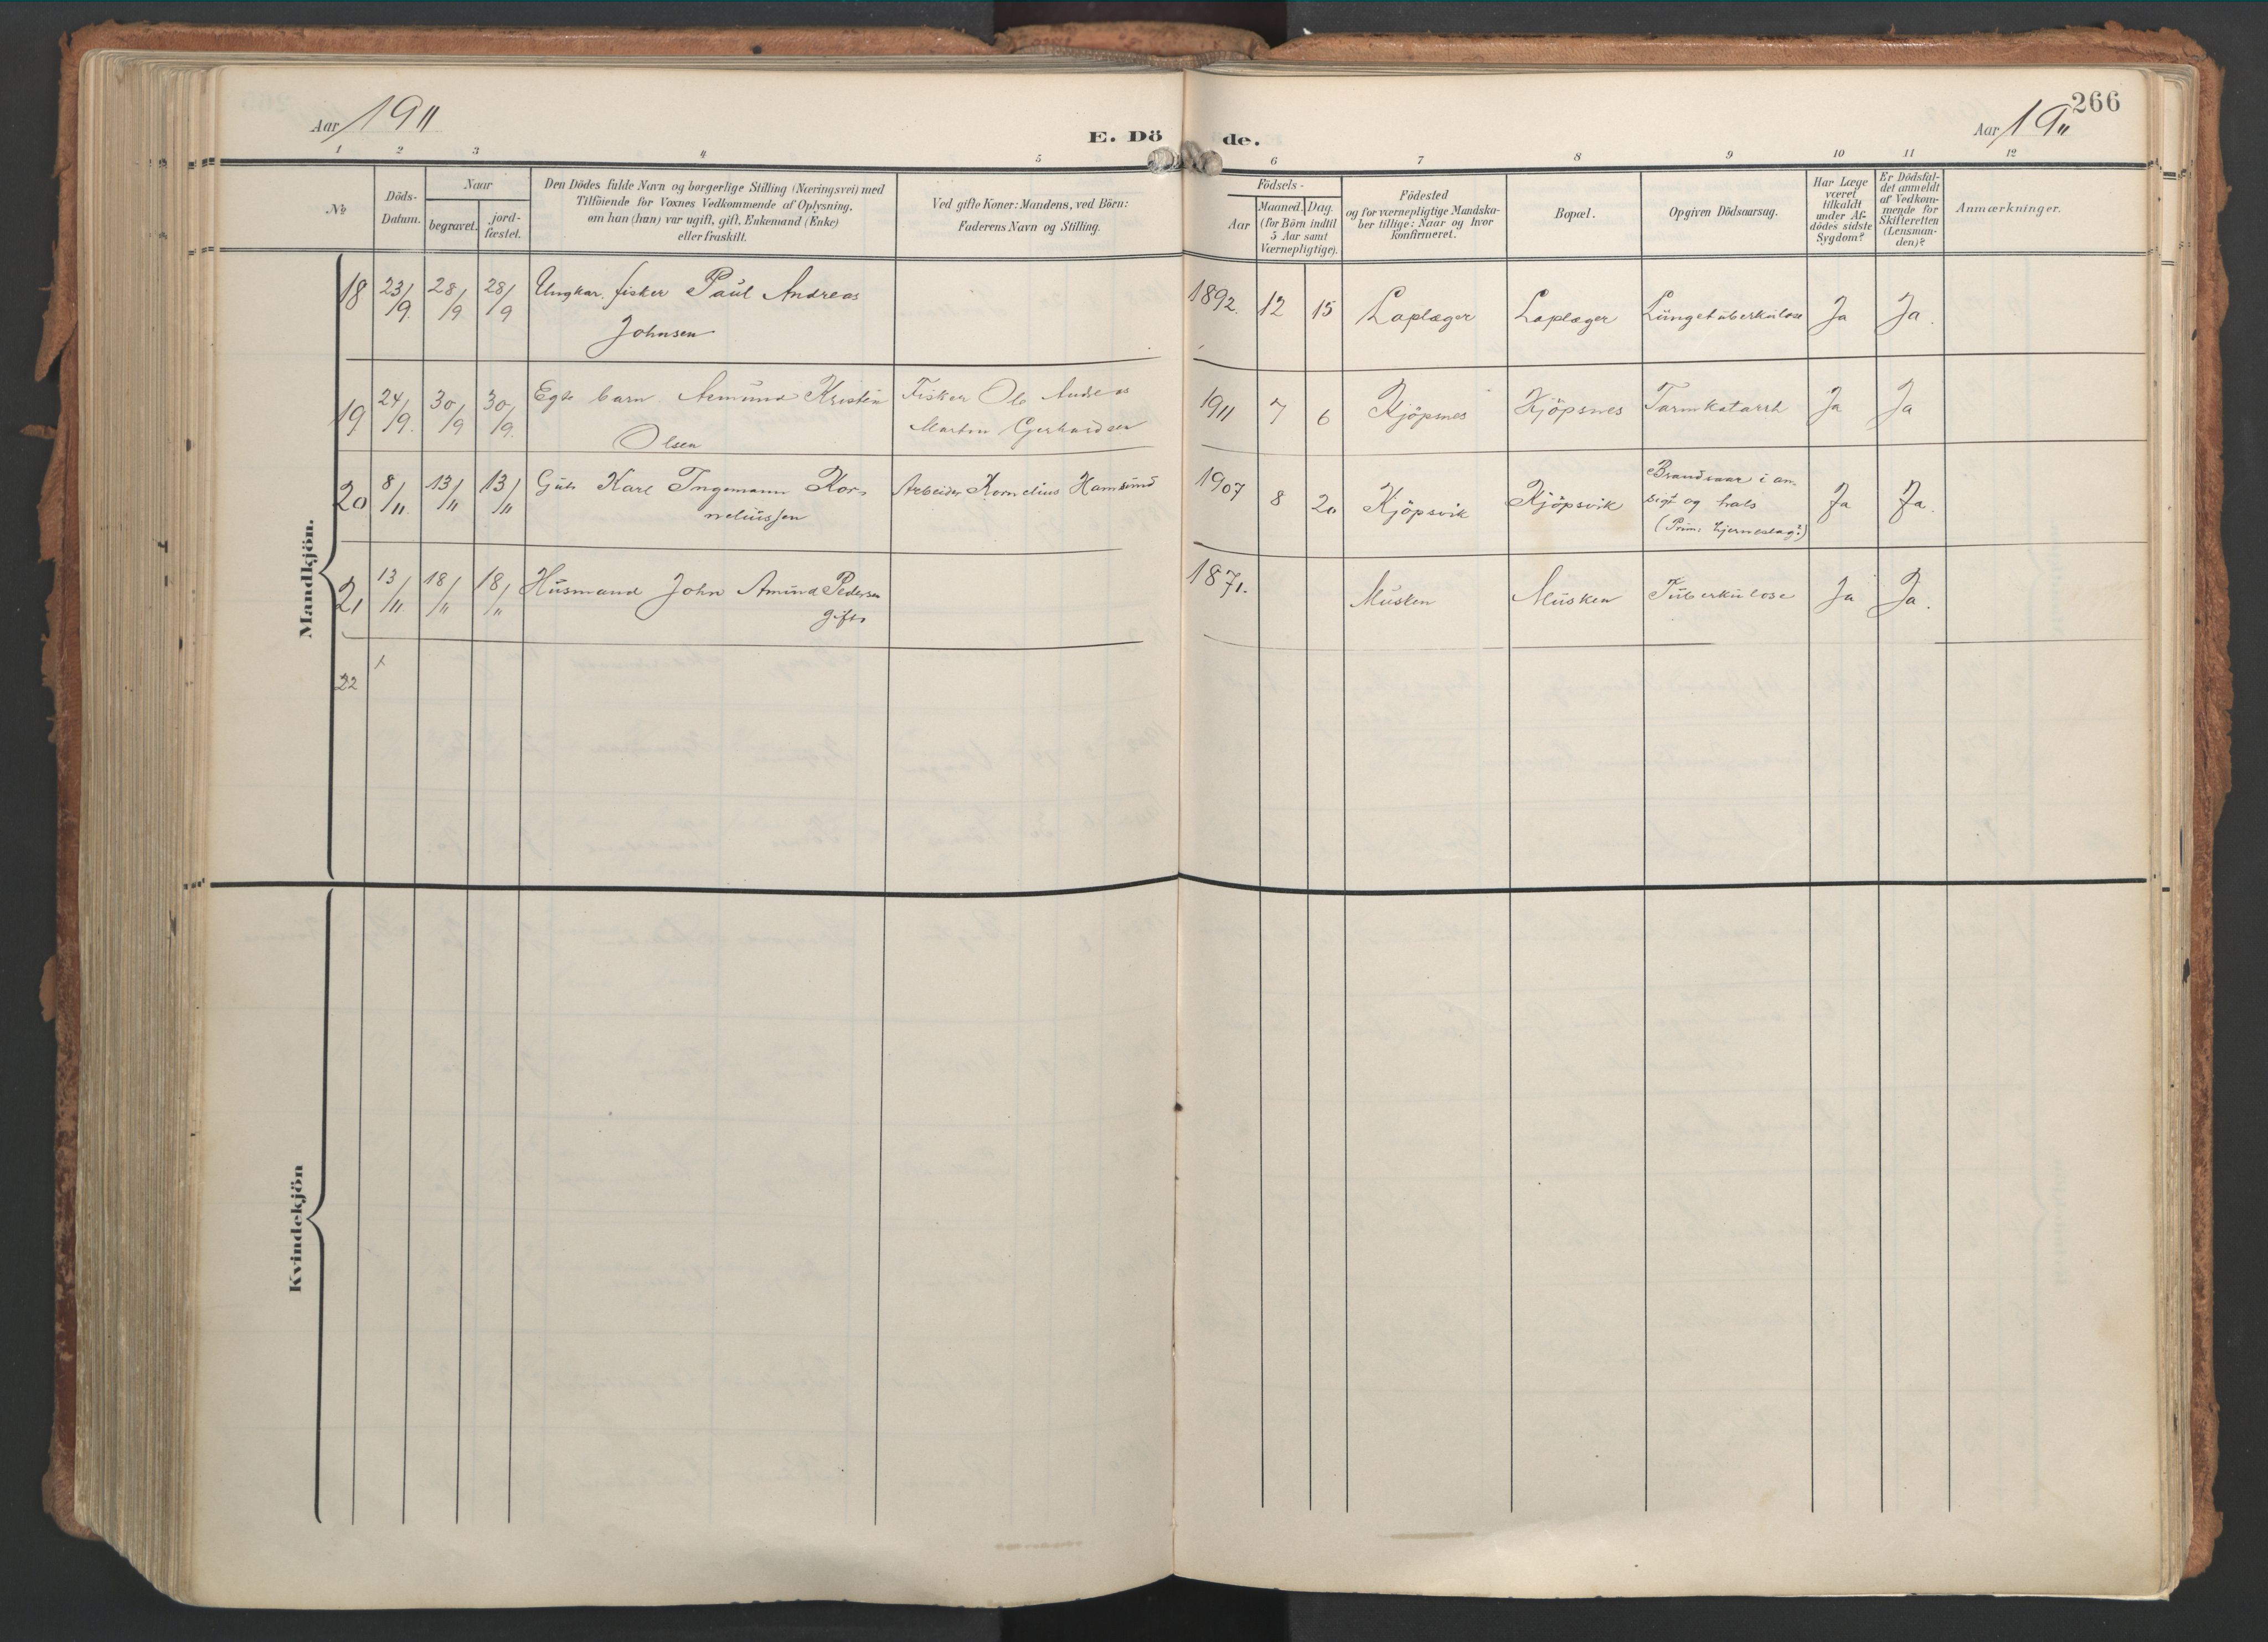 266
Aar 1911
E. Döde.
Aar 1911
1 2 3 4 5 6 7 8 9 10 11 12
No
Döds-
Datum.
Naar
begravet.
jord-
fæstet.
Den Dödes fulde Navn og borgerlige Stilling (Næringsvei) med
Tilföiende for Voxnes Vedkommende af Oplysning,
om han (hun) var ugift, gift, Enkemand (Enke)
eller fraskilt.
Ved gifte Koner: Mandens, ved Börn:
Faderens Navn og Stilling.
Födsels-
Aar
Maaned.
Dag.
(for Börn indtil
5 Aar samt
Værnepligtige).
Födested
og for værnepligtige Mandska-
ber tillige: Naar og hvor
konfirmeret.
Bopæl.
Opgiven Dödsaarsag.
Har Læge
været
tilkaldt
under Af-
dödes sidste
Sygdom?
Er Dödsfal-
det anmeldt
af Vedkom-
mende for
Skifteretten
(Lensman-
den)?
Anmærkninger.
Mandkjön.
18 23/9. 28/9 28/9 Ungkar fisker Paul Andreas 1892. 12 15 Laplæger Laplæger Lungetuberkulose Ja Ja.
Johnsen
19 24/9. 30/9 30/9. Egte barn Asmund Kristin Fisker Ole Andreas 1911 7 6 Kjöpsnes Kjöpsnes Tarmkatarrh Ja Ja
Olsen Martin Gerhardsen
20 8/11. 13/11 13/11 Gut Karl Ingemann Kor- Arbeider Kornelius Hamsund 1907 8 20 Kjöpsvik Kjöpsvik Brandsaar i an- Ja Ja.
neliussen sigt og hals
(Prim: hjerneslag?)
21 13/11 18/11 18/11 Husmand John Amund Pedersen 1871. Musken Musken Tuberkulose Ja Ja.
gift
22
Kvindekjön